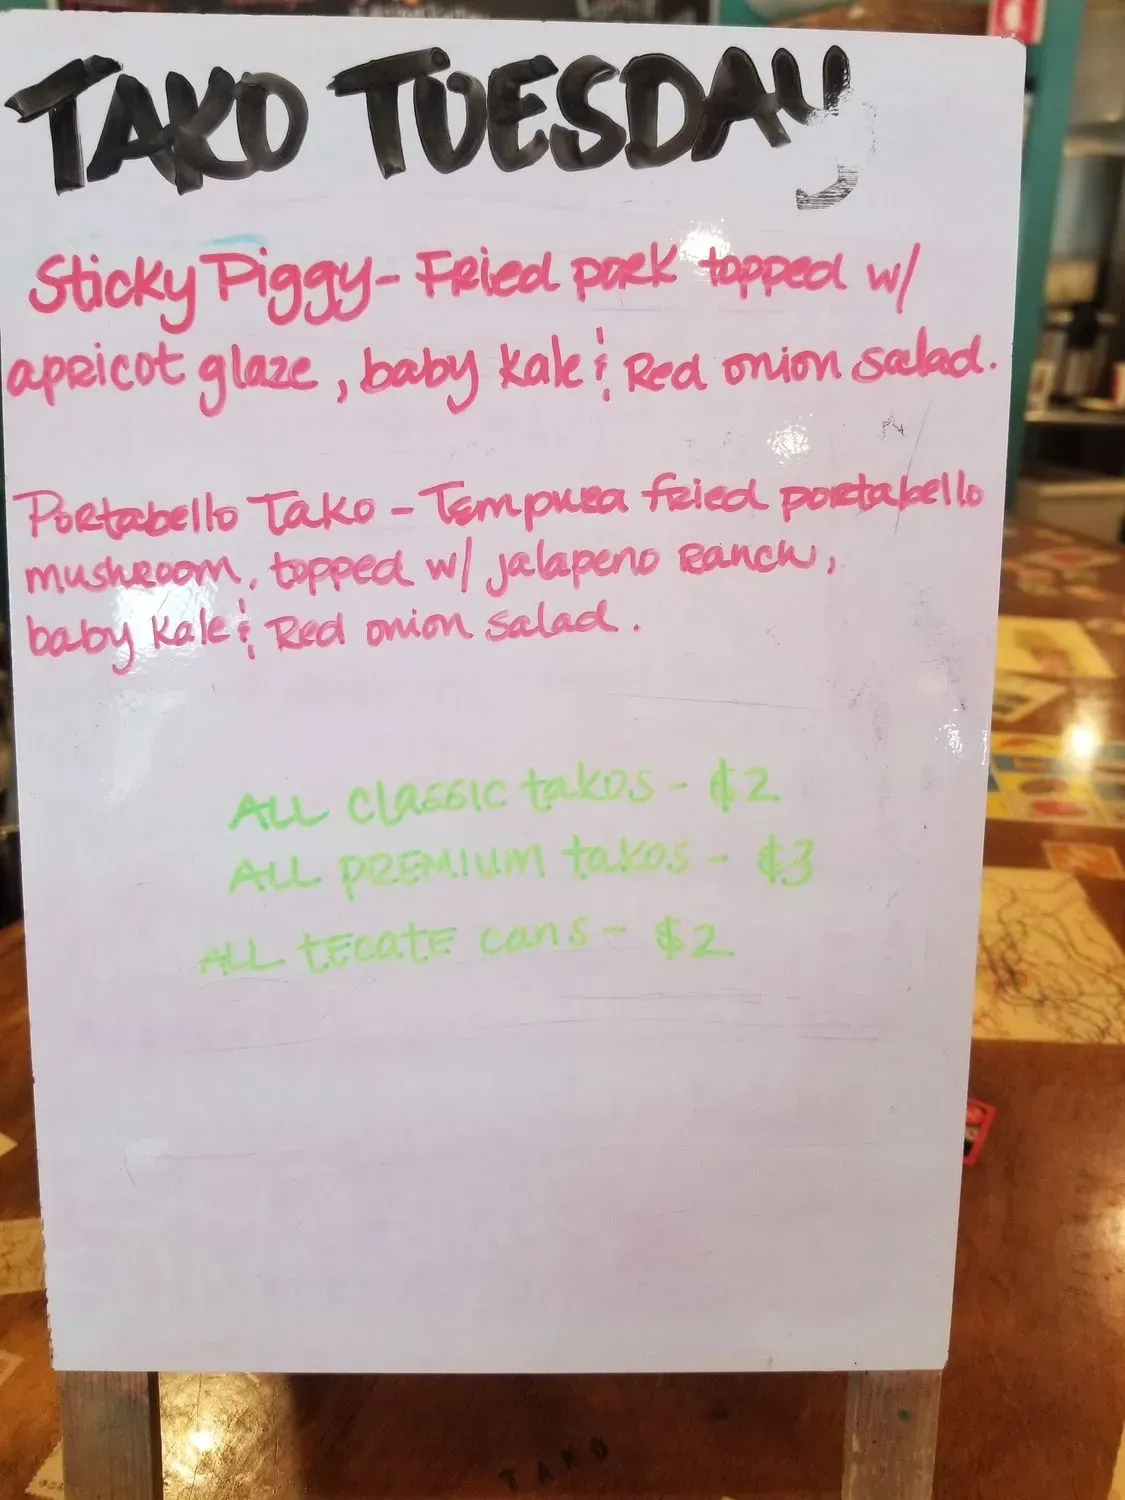 TAKO TUESDAY
Sticky Piggy - Fried pork topped w/
apricot glaze, baby kale & Red onion salad.
Portabello Tako - Tempura fried portabello
mushroom, topped w/ jalapeno Ranch,
baby kale & Red onion salad.
ALL classic takos - $2
ALL PREMIUM takos - $3
ALL tecate cans - $2
TAKO